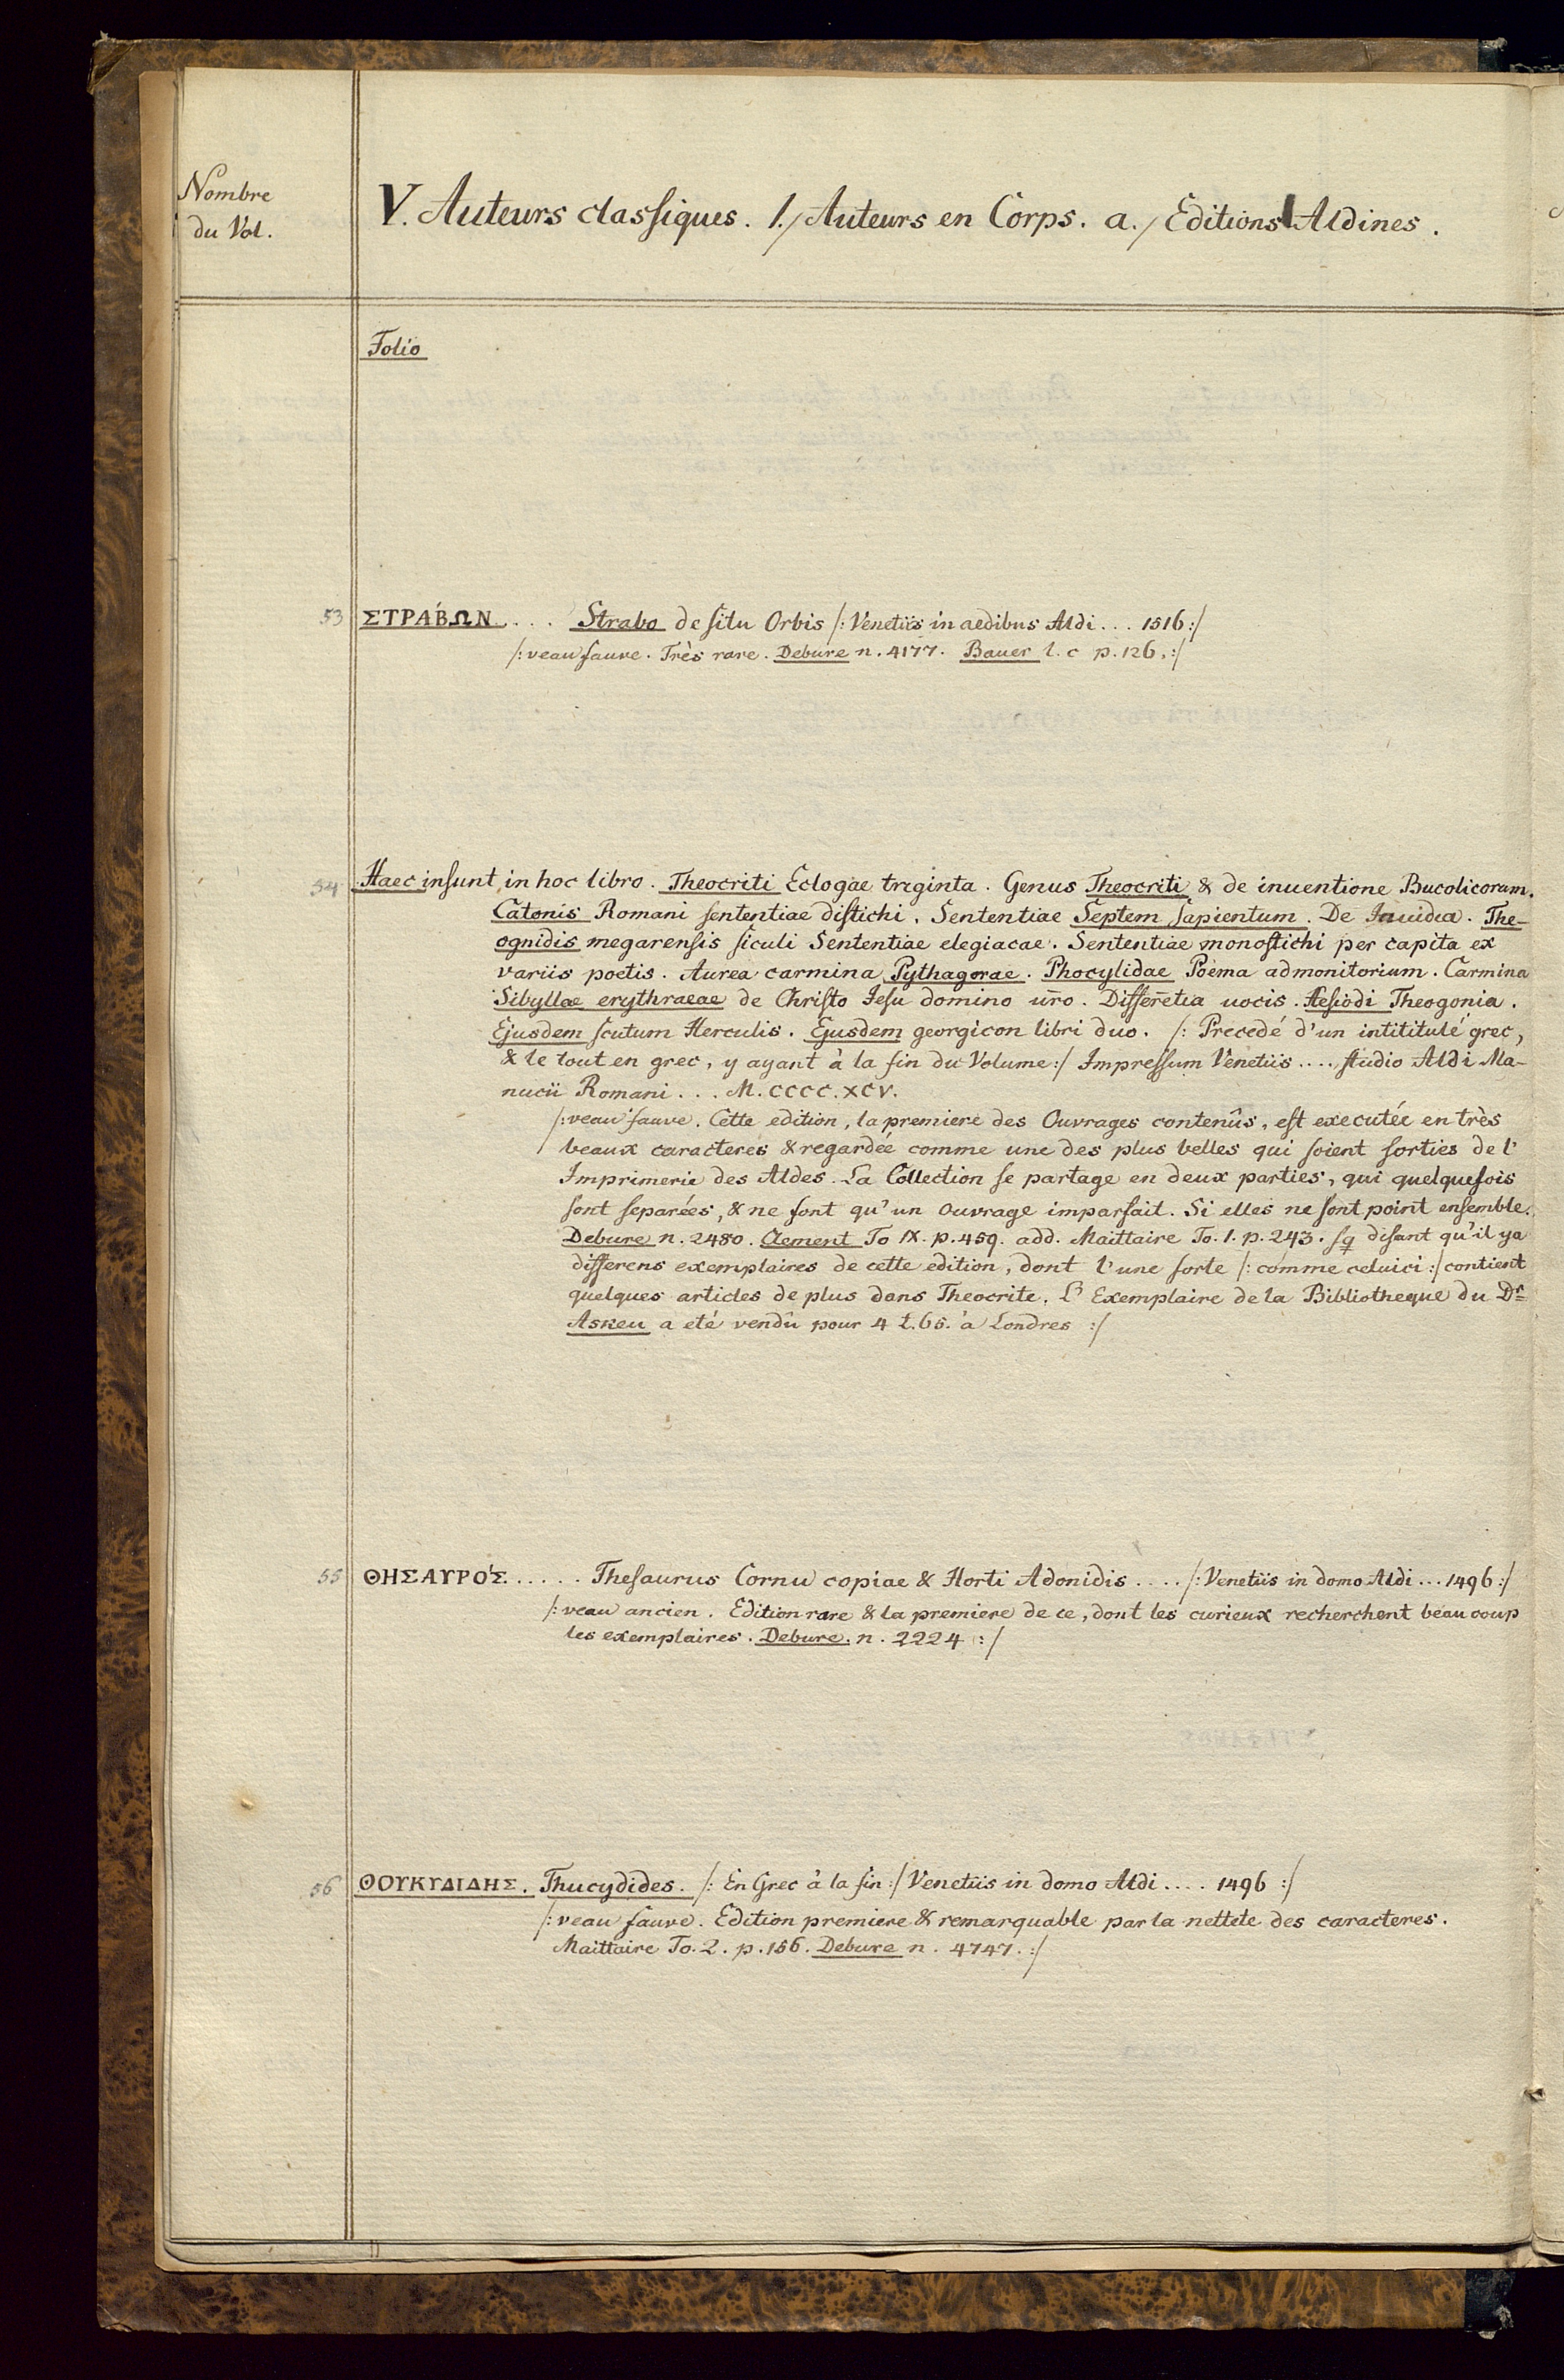 Nombre
du Vol.
V. Auteurs classiques. 1./ Auteurs en Corps. a./ Editions Aldines.
Folio
53 ΣΤΡΑ´ΒΩΝ . . . Strabo de situ Orbis /: Venetiis in aedibus Aldi . . . 1516 :/
/: veau fauve. Très rare. Debure n. 4177. Bauer l. c p. 126. :/
54 Haec insunt in hoc libro. Theocriti Eclogae triginta. Genus Theocriti & de inuentione Bucolicorum.
Catonis Romani sententiae distichi. Sententiae Septem sapientum. De Inuidia. The-
ognidis megarensis siculi Sententiae elegiacae. Sententiae monostichi per capita ex
variis poetis. Aurea carmina Pythagorae. Phocylidae Poëma admonitorium. Carmina
Sibyllae erythraeae de Christo Iesu domino nr̃o. Differẽtia uocis. Hesiodi Theogonia.
Ejusdem scutum Herculis. Ejusdem georgicon libri duo. /: Precedé d'un intititulé grec,
& le tout en grec, y ayant à la fin du Volume :/ Impressum Venetiis .... studio Aldi Ma-
nucii Romani . . . M. CCCC. XCV.
/: veau fauve. Cette edition, la premiere des Ouvrages contenûs, est executée en très
beaux caracteres & regardée comme une des plus belles qui soient sorties de l'
Imprimerie des Aldes. La Collection se partage en deux parties, qui quelquefois
sont separées, & ne font qu'un Ouvrage imparfait. Si elles ne sont point ensemble.
Debure n. 2480. Clement To IX. p. 459. add. Maittaire To. 1. p. 243. sq disant qu'il ya
differens exemplaires de cette edition, dont l'une sorte /: comme celuici :/ contient
quelques articles de plus dans Theocrite. L' Exemplaire de la Bibliotheque du Dr
Askeu a eté vendû pour 4 t. 6 s. à Londres :/
55 ΘΗΣΑΥΡΟ´Σ. . . . . . Thesaurus Cornu copiae & Horti Adonidis .... /: Venetiis in domo Aldi ... 1496 :/
/: veau ancien. Edition rare & la premiere de ce, dont les curieux recherchent beaucoup
les exemplaires. Debure. n. 2224 :/
56 ΘΟΥΚΥΔΙΔΗΣ. Thucydides. /: En Grec à la fin :/ Venetiis in domo Aldi .... 1496 :/
/: veau fauve. Edition premiere & remarquable par la nettete des caracteres.
Maittaire To. 2. p. 156. Debure n. 4747. :/